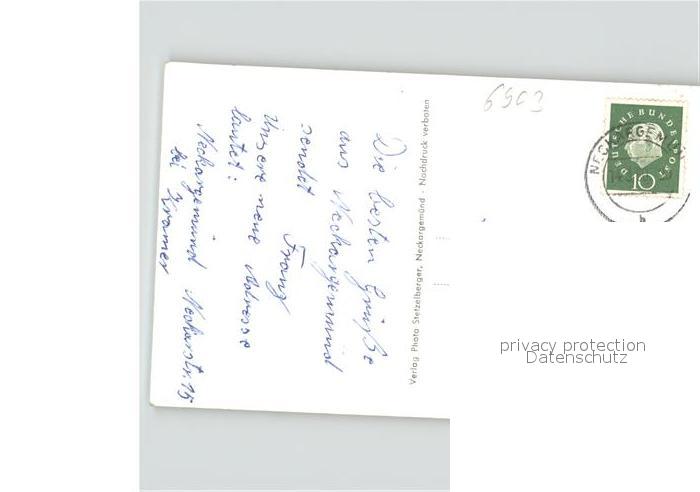 Die besten Grüße
aus Neckargemünd
sendet
Franz
Unsere neue Adresse
lautet:
Neckargemünd Neckarstr. 15
bei Kramer
Verlag Photo Stetzelberger, Neckargemünd · Nachdruck verboten
6903
DEUTSCHE BUNDESPOST
10
NECKARGEMÜND
b
privacy protection
Datenschutz